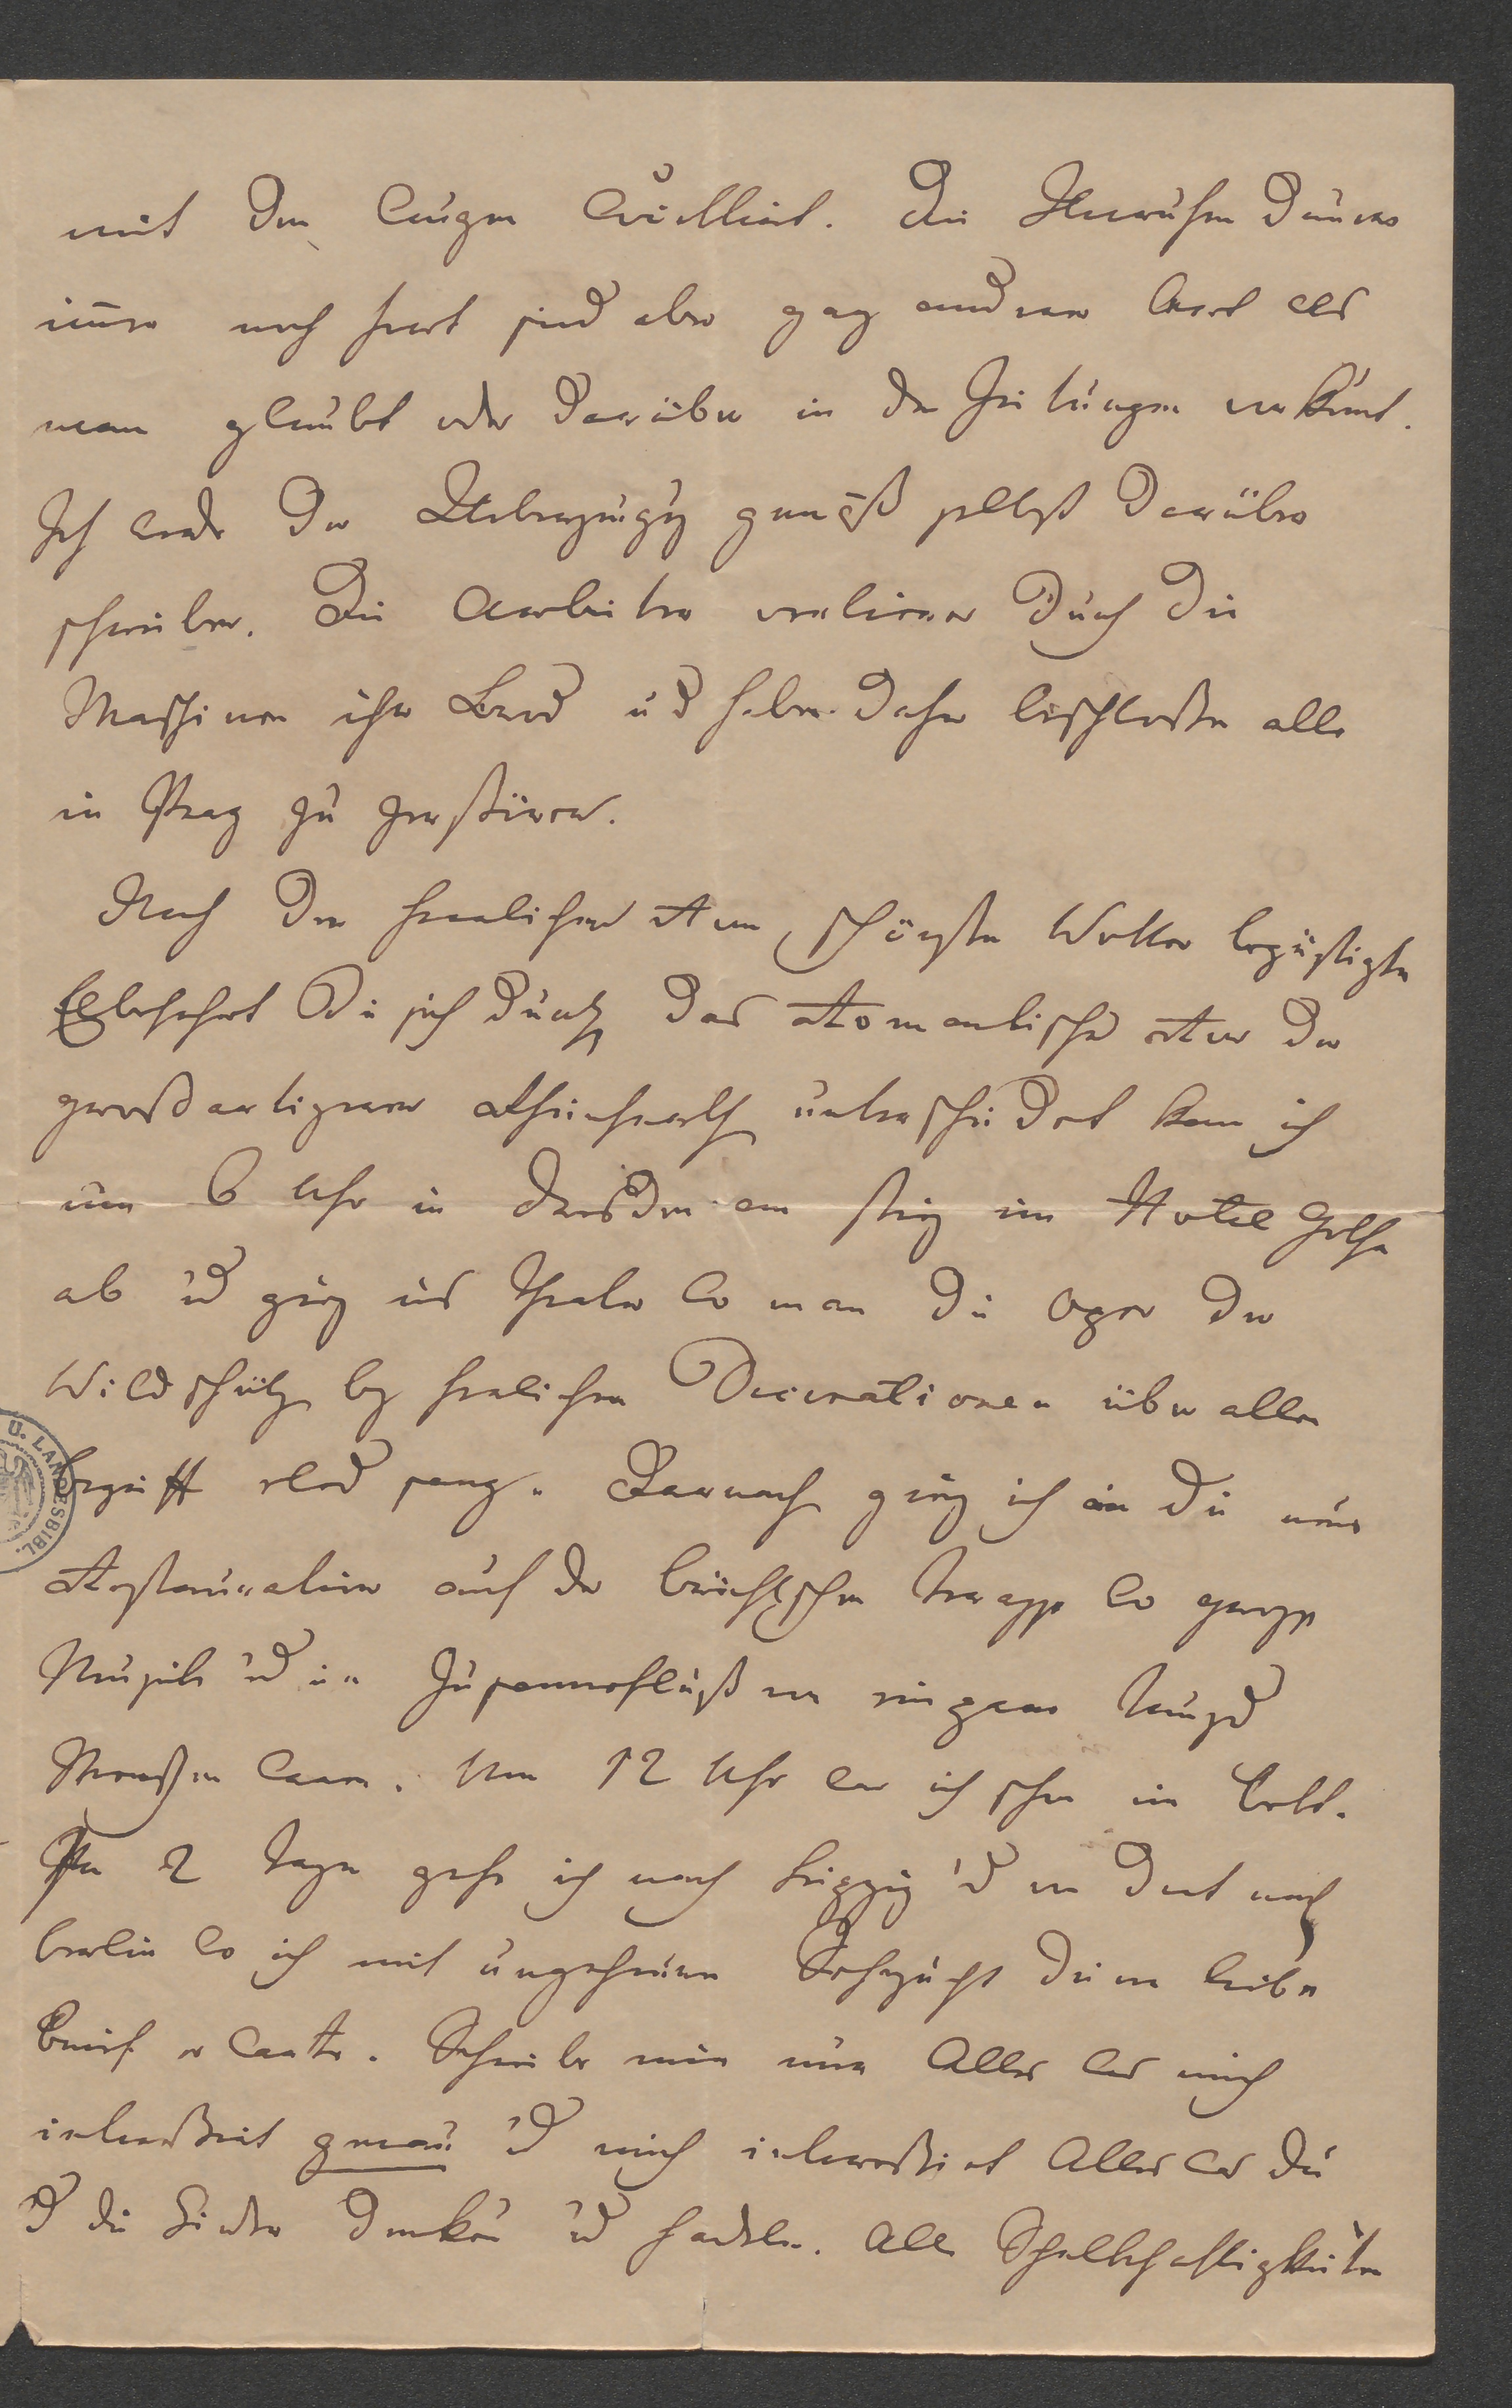 mit den Augen Die Unruhen dauern
immer noch fort sind aber ganz anderer Art als
man glaubt oder darüber in den Zeitungen
Ich werde der Ueberzeugung gemäß selbst darüber
schreiben. Die Arbeiter verlieren durch die
Maschinen ihr Brod und haben daher beschlossen alle
in Prag zu zerstören.
Nach der herrlichen vom schönsten Wetter begünstigten
Elbefahrt die sich durch das romantische von der
großartigeren Rheinfarth unterscheidet kam ich
um 6 Uhr in Dresden an stieg im Hotel
ab und ging ins Theater wo man die Oper der
Wildschütz bey herrlichen Decorationen über allen
Begriff elend sang. Darnach ging ich in die neue
Restauration auf der Brühlschen Terrasse wo große
Musik und ein Zusammenfluß von einigen Tausend
Menschen waren. Um 12 Uhr war ich schon im Bett.
In 2 Tagen gehe ich nach Leipzig und von dort nach
Berlin wo ich mit ungeheurer Sehnsucht deinen lieben
Brief erwarte. Schreibe mir nur Alles was mich
interessirt genau und mich interessirt Alles was Du
und die Kinder denken und handeln. Alle
U. LANDESBIBL.